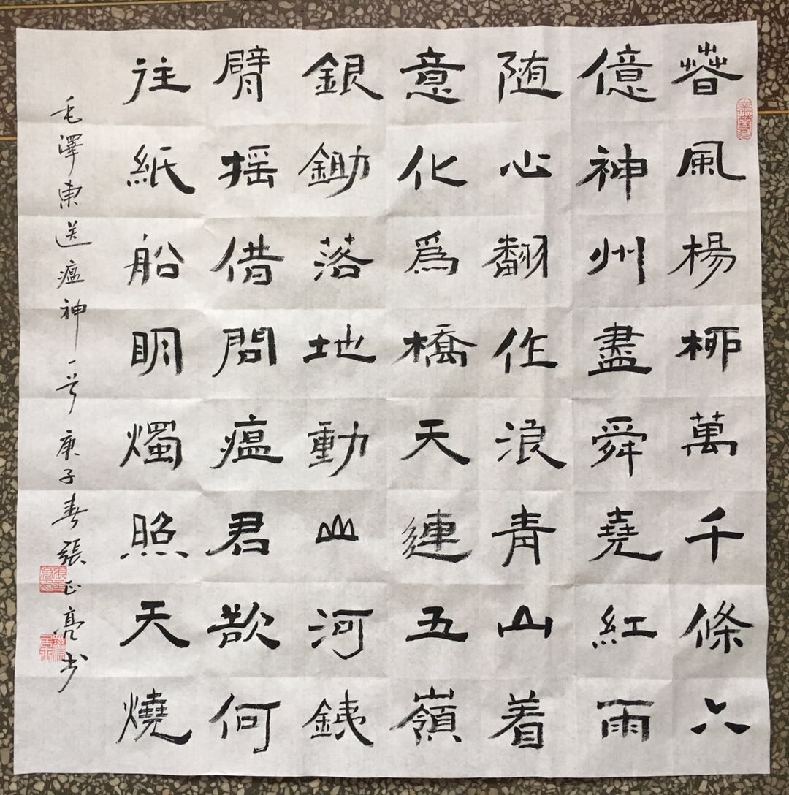 春風楊柳萬千條六
億神州盡舜堯紅雨
随心翻作浪青山着
意化爲橋天連五嶺
銀鋤落地動山河銕
臂摇借問瘟君欲何
往紙船眀燭照天燒
毛澤東送瘟神一首 庚子春張正亮书